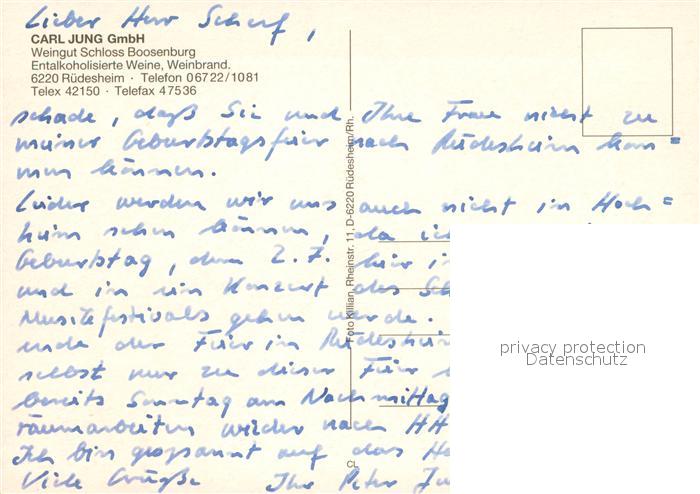 Lieber Herr Scherf,
CARL JUNG GmbH
Weingut Schloss Boosenburg
Entalkoholisierte Weine, Weinbrand.
6220 Rüdesheim · Telefon 06722/1081
Telex 42150 · Telefax 47536
schade, daß Sie und Ihre Frau nicht zu
meiner Geburtstagsfeier nach Rüdesheim kom=
men können.
Leider werden wir uns auch nicht in Hoch=
heim sehen können, da ich
Geburtstag, dem 2.7. hier i
und in ein Konzert des Sc
Musikfestivals gehen werde.
ende der Feier in Rüdesheim
selbst nur zu dieser Feier
bereits Sonntag am Nachmittag
räumarbeiten wieder nach HH
Ich bin gespannt auf das Ho
Viele Grüße Ihr Peter Ju
Foto Killian, Rheinstr. 11, D-6220 Rüdesheim/Rh.
CL
privacy protection
Datenschutz